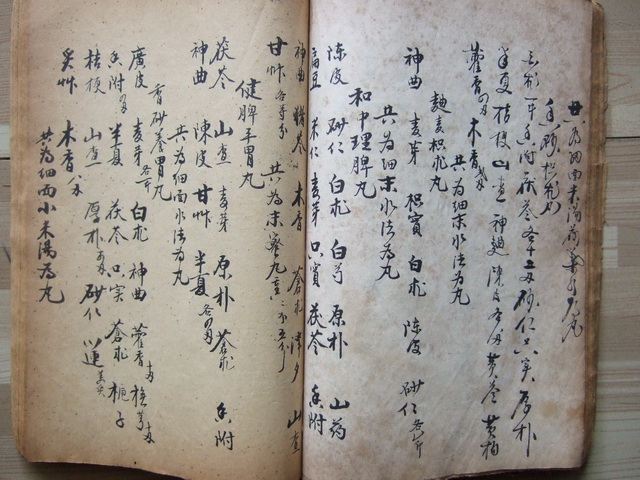 共為細面米湯為丸
香砂枳术丸
香附 茯苓 砂仁 只实 厚朴
半夏 桔梗 山查 神麯 陳皮 黄芩 黄柏
藿香 木香
共為细末水法為丸
麯麦枳朮丸
神曲 麦芽 枳實 白朮 陳皮 砂仁 各一斤
共為细末水法為丸
和中理脾丸
陈皮 砂仁 白朮 白芍 原朴 山药
扁豆 米仁 麦芽 只實 茯苓 香附
神曲 猪苓 木香 蒼朮 泽夕 山查
甘艸 各等分 共為末蜜丸重二
健脾平胃丸
茯苓 山查 麦芽 原朴 蒼朮 香附
神曲 陳皮 甘艸 半夏 各四两
共為细面水法為丸
香砂養胃丸
廣皮 麦芽 白朮 神曲 藿香
香附 半夏 茯苓 只实 蒼朮 梔子
桔梗 山查 厚朴 砂仁
炙艸 木香
共為细面小米湯為丸